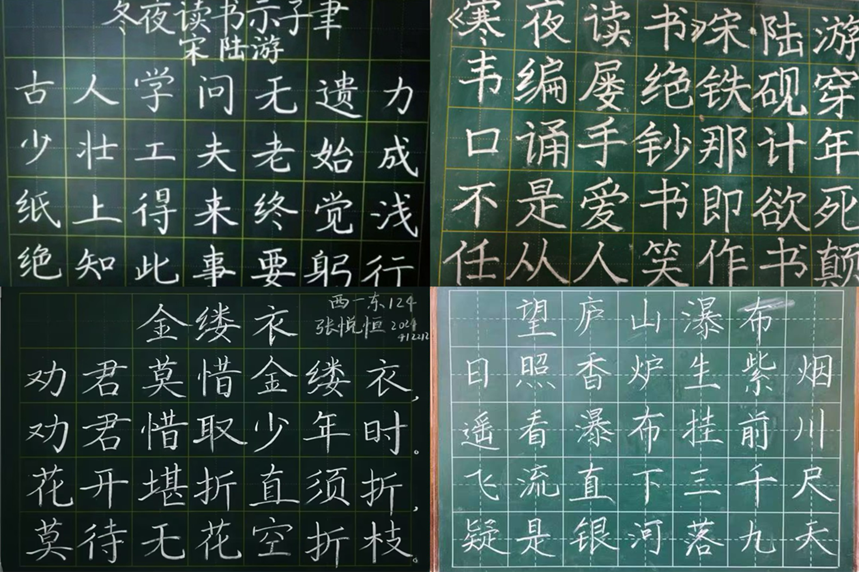 冬夜读书示子聿
宋陆游
古人学问无遗力
少壮工夫老始成
纸上得来终觉浅
绝知此事要躬行
《寒夜读书》宋·陆游
韦编屡绝铁砚穿
口诵手钞那计年
不是爱书即欲死
任从人笑作书颠
金缕衣
西一东124
张悦恒2024
劝君莫惜金缕衣,
劝君惜取少年时。
花开堪折直须折,
莫待无花空折枝。
望庐山瀑布
日照香炉生紫烟
遥看瀑布挂前川
飞流直下三千尺
疑是银河落九天